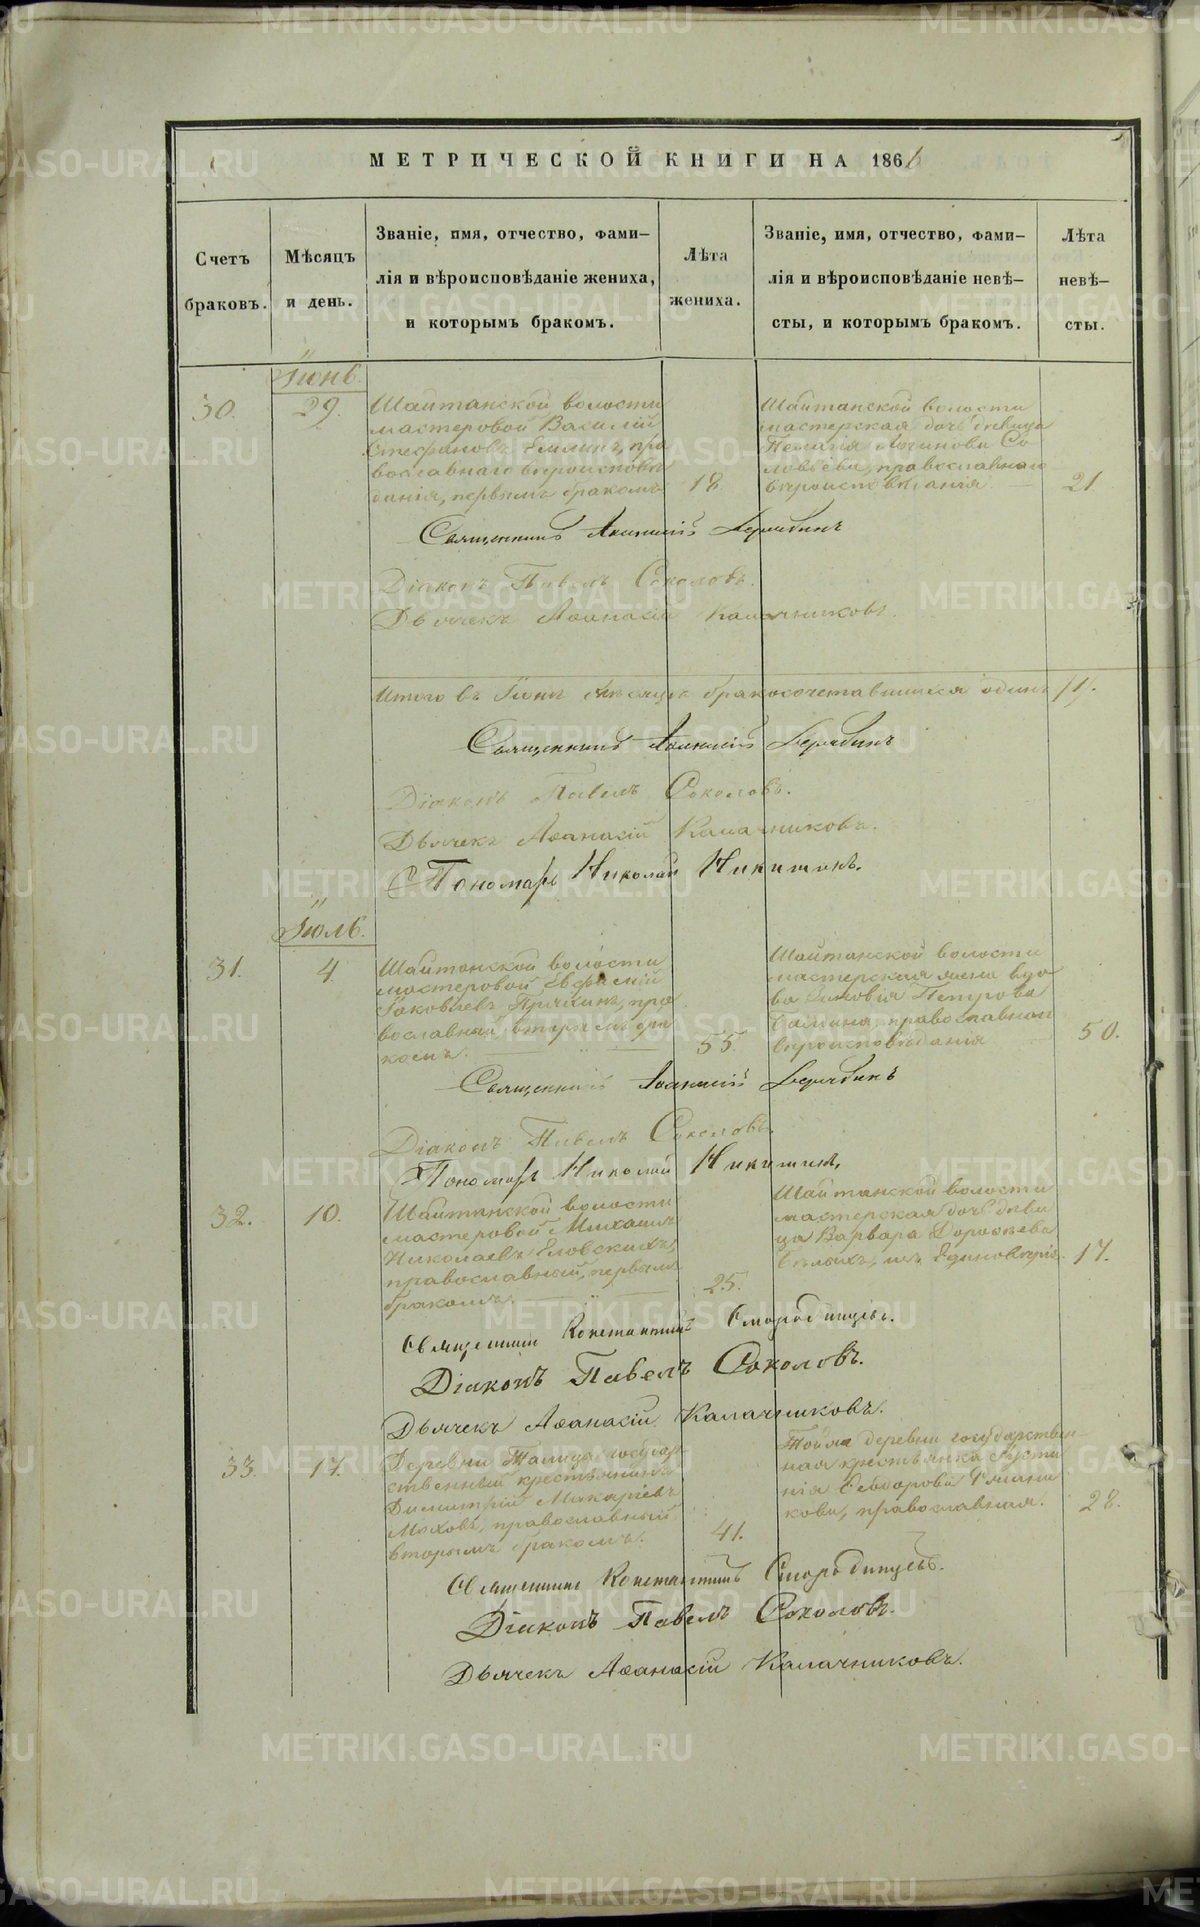 МЕТРИЧЕСКОЙ КНИГИ НА 1866
Счетъ браковъ.
Мѣсяцъ и день.
Званіе, имя, отчество, фами-
лія и вѣроисповѣданіе жениха,
и которымъ бракомъ.
Лѣта жениха.
Званіе, имя, отчество, фами-
лія и вѣроисповѣданіе невѣ-
сты, и которымъ бракомъ.
Лѣта невѣ-
сты.
Іюнь.
30.
29.
Шайтанской волости
мастеровой Василій
Стефановъ Емлинъ, пра
вославнаго вѣроисповѣ
данія, первымъ бракомъ
18
Шайтанской волости
мастерская дочь девица
Пелагія Логинова Со-
ловьева, православнаго
вѣроисповѣданія
21
Священникъ
Діаконъ Павелъ Соколовъ.
Дьячекъ Аѳанасій Калачниковъ.
Итого въ Іюнѣ мѣсяцѣ бракосочетавшихся одинъ /1/.
Священникъ
Діаконъ Павелъ Соколовъ.
Дьячекъ Аѳанасій Калачниковъ.
Пономарь Николай Никитинъ.
Іюль.
31.
4
Шайтанской волости
мастеровой Евфимій
Іаковлевъ, пра
вославный, вторымъ бра
комъ.
55.
Шайтанской волости
мастерская жена вдо
ва Зиновія Петрова
православнаго
вѣроисповѣданія
50.
Священникъ
Діаконъ Павелъ Соколовъ.
Пономарь Николай Никитинъ.
32.
10.
Шайтанской волости
мастеровой Михаилъ
Николаевъ Еловскихъ,
православный, первымъ
бракомъ.
25.
Шайтанской волости
мастерская дочь дѣви
ца Варвара Дороѳеева
Бѣлыхъ, изъ Единовѣрія.
17.
Священникъ Константинъ Смородинцевъ.
Діаконъ Павелъ Соколовъ.
Дьячекъ Аѳанасій Калачниковъ.
33.
17.
Деревни Талицы государ-
ственный крестьянинъ
Димитрій Макаріевъ
Моховъ, православный,
вторымъ бракомъ.
41.
Тойже деревни государствен-
ная крестьянка Іусти
нія Ѳеодорова
кова, православная.
28.
Священникъ Константинъ Смородинцевъ.
Діаконъ Павелъ Соколовъ.
Дьячекъ Аѳанасій Калачниковъ.
METRIKI.GASO-URAL.RU